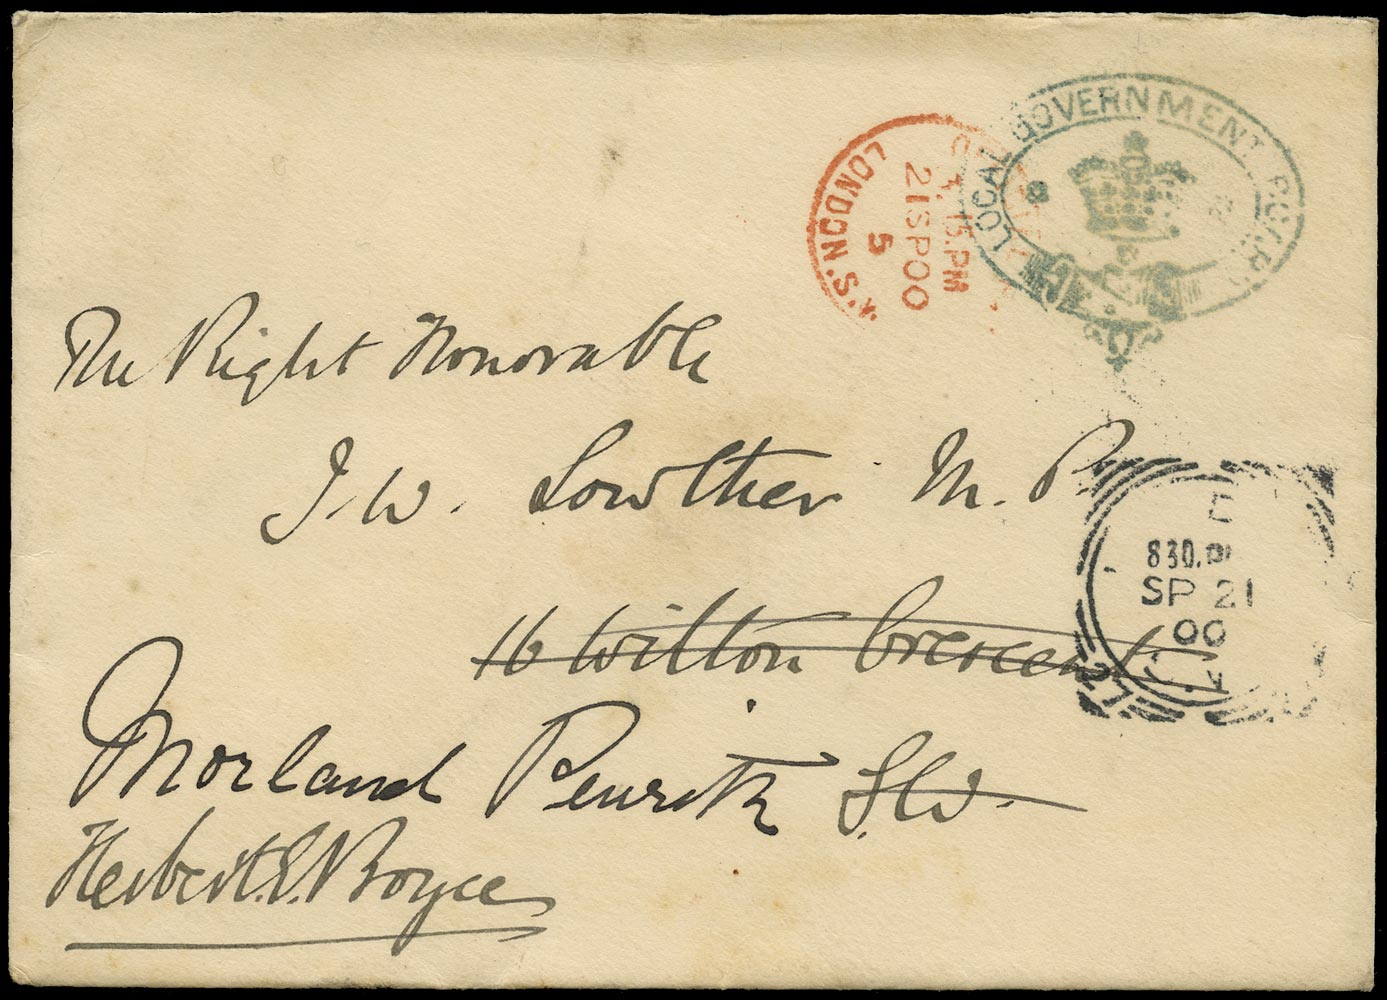 LOCAL GOVERNMENT BOARD
LONDON.S.
.15.PM
21SP00
5
The Right Honorable
J. W. Lowther M. P.
16 Wilton Crescent
S.W.
Morland Penrith
Herbert. E. Boyce
830.PM
SP 21
00
27